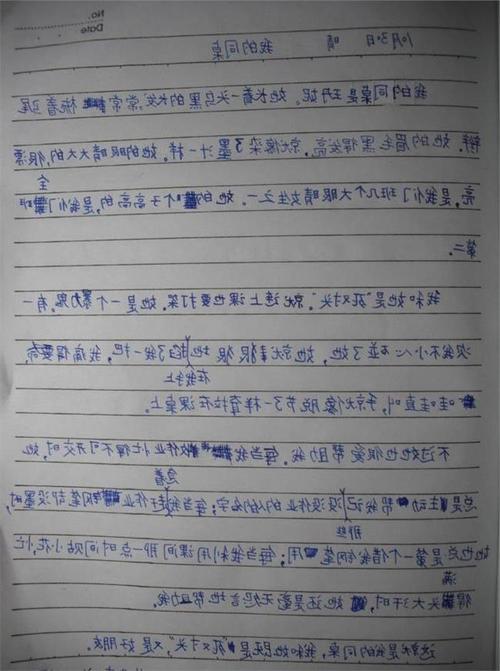 No.
Date
10月30日 晴
我的同桌
我的同桌是 妮。她长着一头乌黑的长发,常常梳着马尾
辫。她的眉毛黑得发亮,就像染了墨汁一样。她的眼睛大大的,很漂
亮,是我们班几个大眼睛女生之一。她的个子高高的,是我们全班
第二。
我和她是“死对头”。就连上课也要打架。她是一个暴力鬼。有一
次我不小心碰了她,她就狠狠地在我手上掐了我一把,我痛得要命,
哇哇直叫,手就像脱节了一样耷拉在课桌上。
不过她也很爱帮助我。每当我作业忙得不可开交时,她
总是主动帮我记那些没交作业的人的名字;每当我急着赶作业钢笔却没墨时,
她也总是第一个借我钢笔用;每当我利用课间那一点时间贴小花,忙
得满头大汗时,她还是毫无怨言地帮助我。
这就是我的同桌,我和她既是“死对头”,又是好朋友。